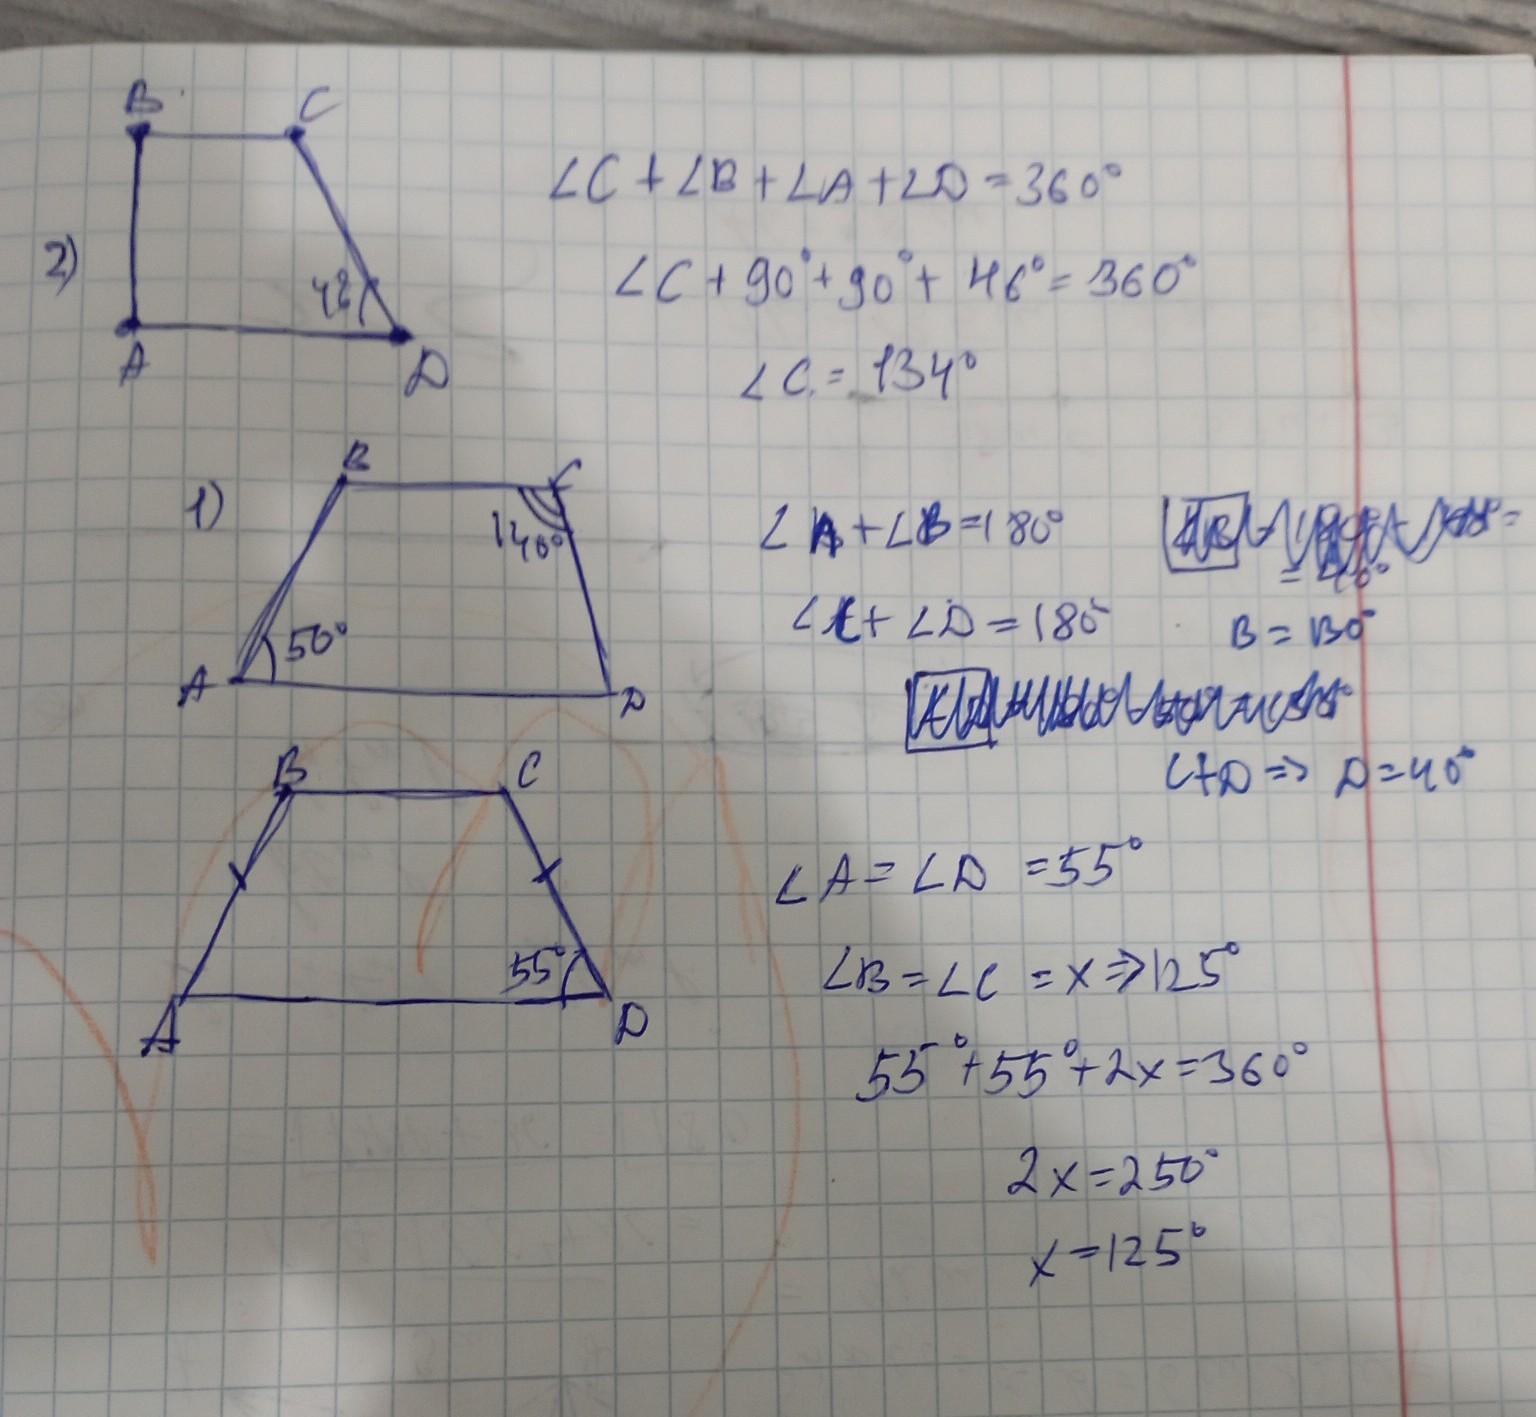 B C
2)
48
A D
∠C + ∠B + ∠A + ∠D = 360°
∠C + 90° + 90° + 46° = 360°
∠C = 134°
1)
B C
140°
50°
A D
∠A + ∠B = 180°
∠C + ∠D = 180°
B = 130°
C+D => D = 40°
B C
55°
A D
∠A = ∠D = 55°
∠B = ∠C = x => 125°
55° + 55° + 2x = 360°
2x = 250°
x = 125°